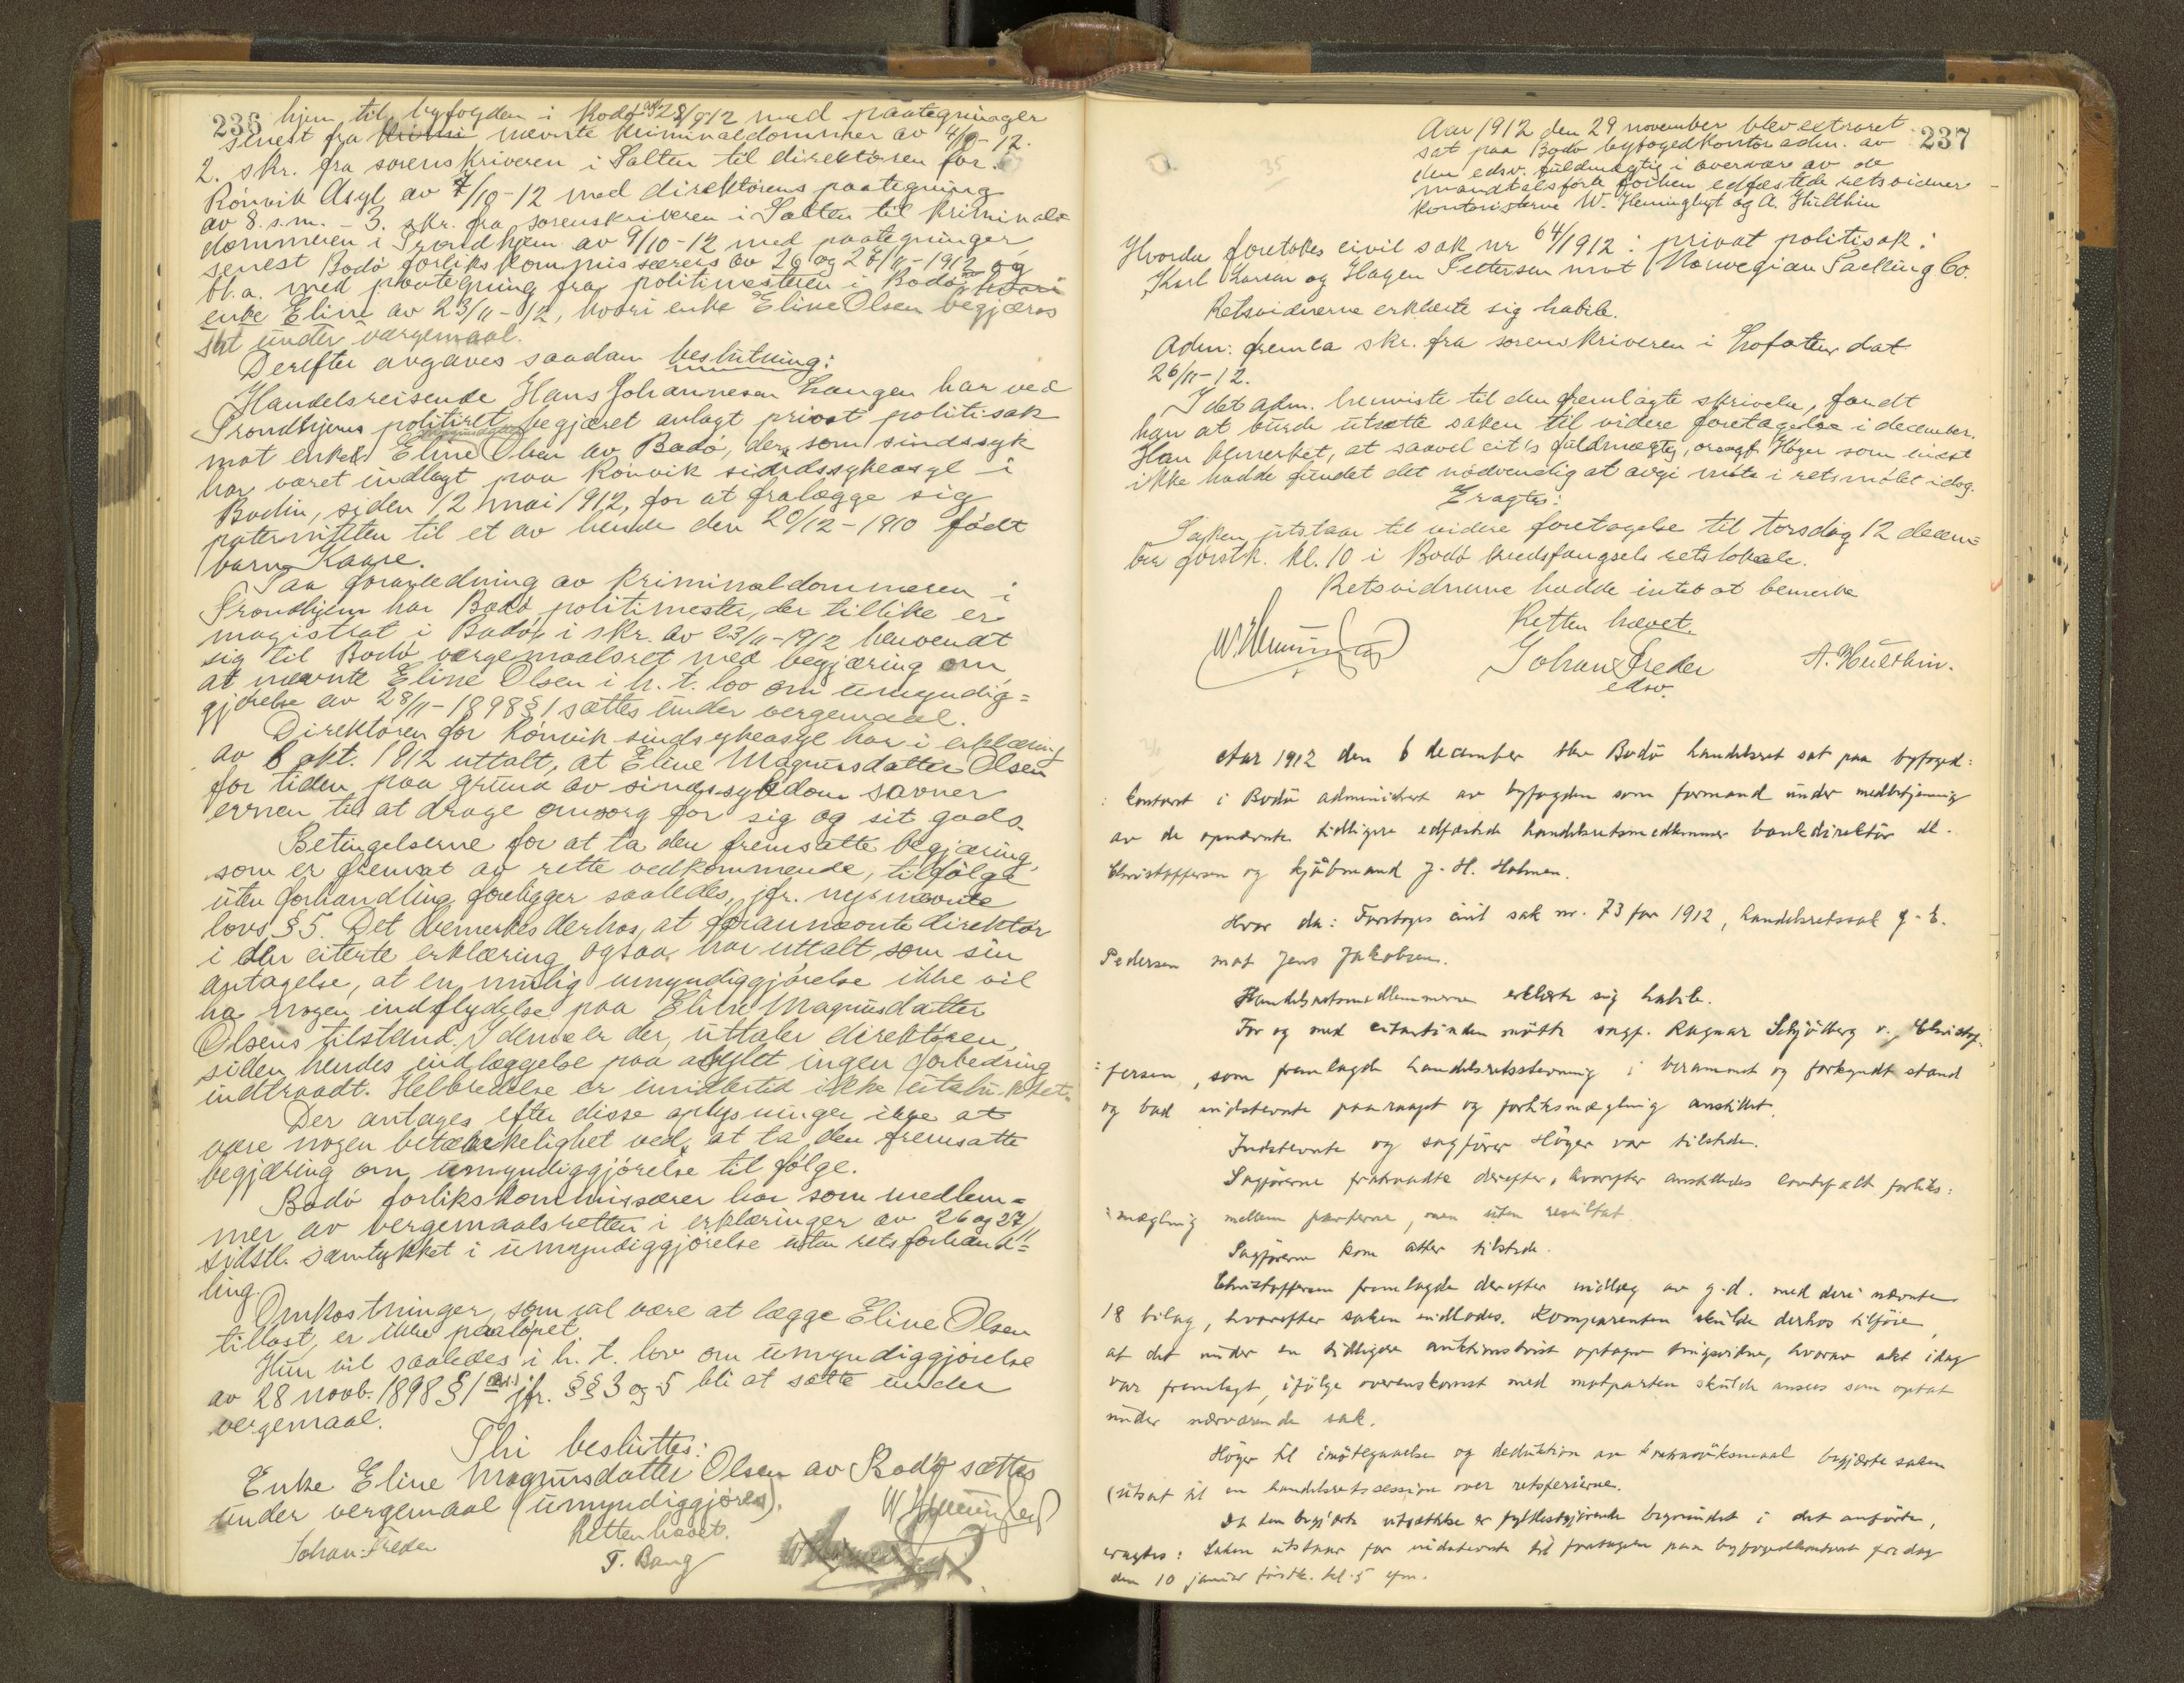 236
hjem til byfogden i Bodø av 28/9 12 med paategninger
senest fra nævnte kriminaldommer av 4/9-12.
2. skr. fra sorenskriveren i Salten til direktøren for
Rønvik Asyl av 7/10-12 med direktørens paategning
av 8. s.m. - 3. skr. fra sorenskriveren i Salten til kriminal-
dommeren i Trondhjem av 9/10-12 med paategninger,
senest Bodø forlikskommissærers av 26 og 27/11-1912 og
bl.a. med paategning fra politimesteren i Bodø
enke Eline av 23/11-12, hvori enke Eline Olsen begjæres
sat under vergemaal.
Derefter avgaves saadan beslutning:
Handelsreisende Hans Johannesen Haugen har ved
Trondhjems politiret begjæret anlagt privat politisak
mot enke Eline Magnusdatter Olsen av Bodø, der som sindssyk
har været indlagt paa Rønvik sindssykeasyl i
Bodin, siden 12 mai 1912, for at fralægge sig
paterniteten til et av hende den 29/12-1910 født
barn Kaare.
Paa foranledning av kriminaldommeren i
Trondhjem har Bodø politimester, der tillike er
magistrat i Bodø, i skr. av 23/11-1912 henvendt
sig til Bodø vergemaalsret med begjæring om,
at nævnte Eline Olsen i h. t. lov om umyndig-
gjørelse av 28/11-1898 § 1 sættes under vergemaal.
Direktøren for Rønvik sindssykeasyl har i erklæring
av 8 okt. 1912 uttalt, at Eline Magnusdatter Olsen
for tiden paa grund av sindssykdom savner
evnen til at drage omsorg for sig og sit gods.
Betingelserne for at ta den fremsatte begjæring,
som er fremsat av rette vedkommende, tilfølge
uten forhandling foreligger saaledes, jfr. nysnævnte
lovs § 5. Det bemerkes derhos, at forannævnte direktør
i den citerte erklæring ogsaa har uttalt som sin
antagelse, at en mulig umyndiggjørelse ikke vil
ha nogen indflydelse paa Eline Magnusdatter
Olsens tilstand. I denne er der, uttaler direktøren,
siden hendes indlæggelse paa asylet ingen forbedring
indtraadt. Helbredelse er imidlertid ikke utelukket.
Der antages efter disse oplysninger ikke at
være nogen betænkelighet ved at ta den fremsatte
begjæring om umyndiggjørelse til følge.
Bodø forlikskommissærer har som medlem-
mer av vergemaalsretten i erklæringer av 26 og 27/11
sidstl. samtykket i umyndiggjørelse uten retsforhand-
ling.
Omkostninger, som vil være at lægge Eline Olsen
tillast, er ikke paaløpet.
Hun vil saaledes i h. t. lov om umyndiggjørelse
av 28 novb. 1898 § 1 jfr. §§ 3 og 5 bli at sætte under
vergemaal.
Thi besluttes:
Enke Eline Magnusdatter Olsen av Bodø sættes
under vergemaal (umyndiggjøres).
Retten hævet.
Johan Freder
F. Bang
237
35
Aar 1912 den 29 november blev extraret
sat paa Bodø byfogedkontor adm. av
den edsv. fuldmægtig i overvære av de
mandtalsførte forhen edfæstede retsvidner
kontoristerne W. Hemingbyt og A. Hulthin
Hvorda foretokes civil sak nr 64/1912: privat politisak:
Karl Larsen og Hagen Pettersen mot Norwegian Packing Co.
Retsvidnerne erklærte sig habile.
Adm. fremla skr. fra sorenskriveren i Lofoten dat
26/11-12.
Idet adm. henviste til den fremlagte skrivelse, fandt
han at burde utsætte saken til videre foretagelse i december.
Han bemerket, at saavel cit's fuldmægtig, orsagf. Høyer som indst
ikke hadde fundet det nødvendig at avgi møte i retsmøtet idag.
Eragtes:
Saken utstaar til videre foretagelse til torsdag 12 decem-
ber førstk. kl. 10 i Bodø kredsfængsels retslokale.
Retsvidnerne hadde intet at bemerke
Retten hævet.
Johan Freder
edsv.
A. Hulthin.
36
Aar 1912 den 6 december blev Bodø handelsret sat paa byfoged-
kontoret i Bodø administrert av byfogden som formand under medbetjening
av de opnævnte tidligere edfæstede handelsretsmedlemmer bankdirektør
Christoffersen og kjøbmand J. H. Holmen.
Hvor da: Foretoges civil sak nr. 73 for 1912, handelsretssak
Pedersen mot Jens Jakobsen.
Handelsretsmedlemmerne erklærte sig habile.
For og med citantinden møtte sagf. Ragnar Schjølberg v. Christof-
fersen, som fremlagde handelsretsstevning i berammet og forkyndt stand
og bad indstevnte paaraapt og forliksmægling anstillet.
Indstevnte og sagfører Høyer var tilstede.
Sagførerne fratraadte derefter, hvorefter anstilledes lovbefalt forliks-
mægling mellem parterne, men uten resultat.
Sagførerne kom atter tilstede.
Christoffersen fremlagde derefter indlæg av g.d. med deri nævnte
18 bilag, hvorefter saken indlodes. Komparenten skulde derhos tilføie,
at det under en tidligere auktionstvist optagne tingsvidne, hvorav akt idag
var fremlagt, ifølge overenskomst med motparten skulde ansees som optat
under nærværende sak.
Høyer til imøtegaaelse og deduktion av kontrasøksmaal begjærte saken
utsat til en handelsretssession over retsferierne.
Da den begjærte utsættelse er fyldestgjørende begrundet i det anførte,
eragtes: Saken utstaar for indstevnte til foretagelse paa byfogedkontoret fredag
den 10 januar førstk. kl. 5 efm.